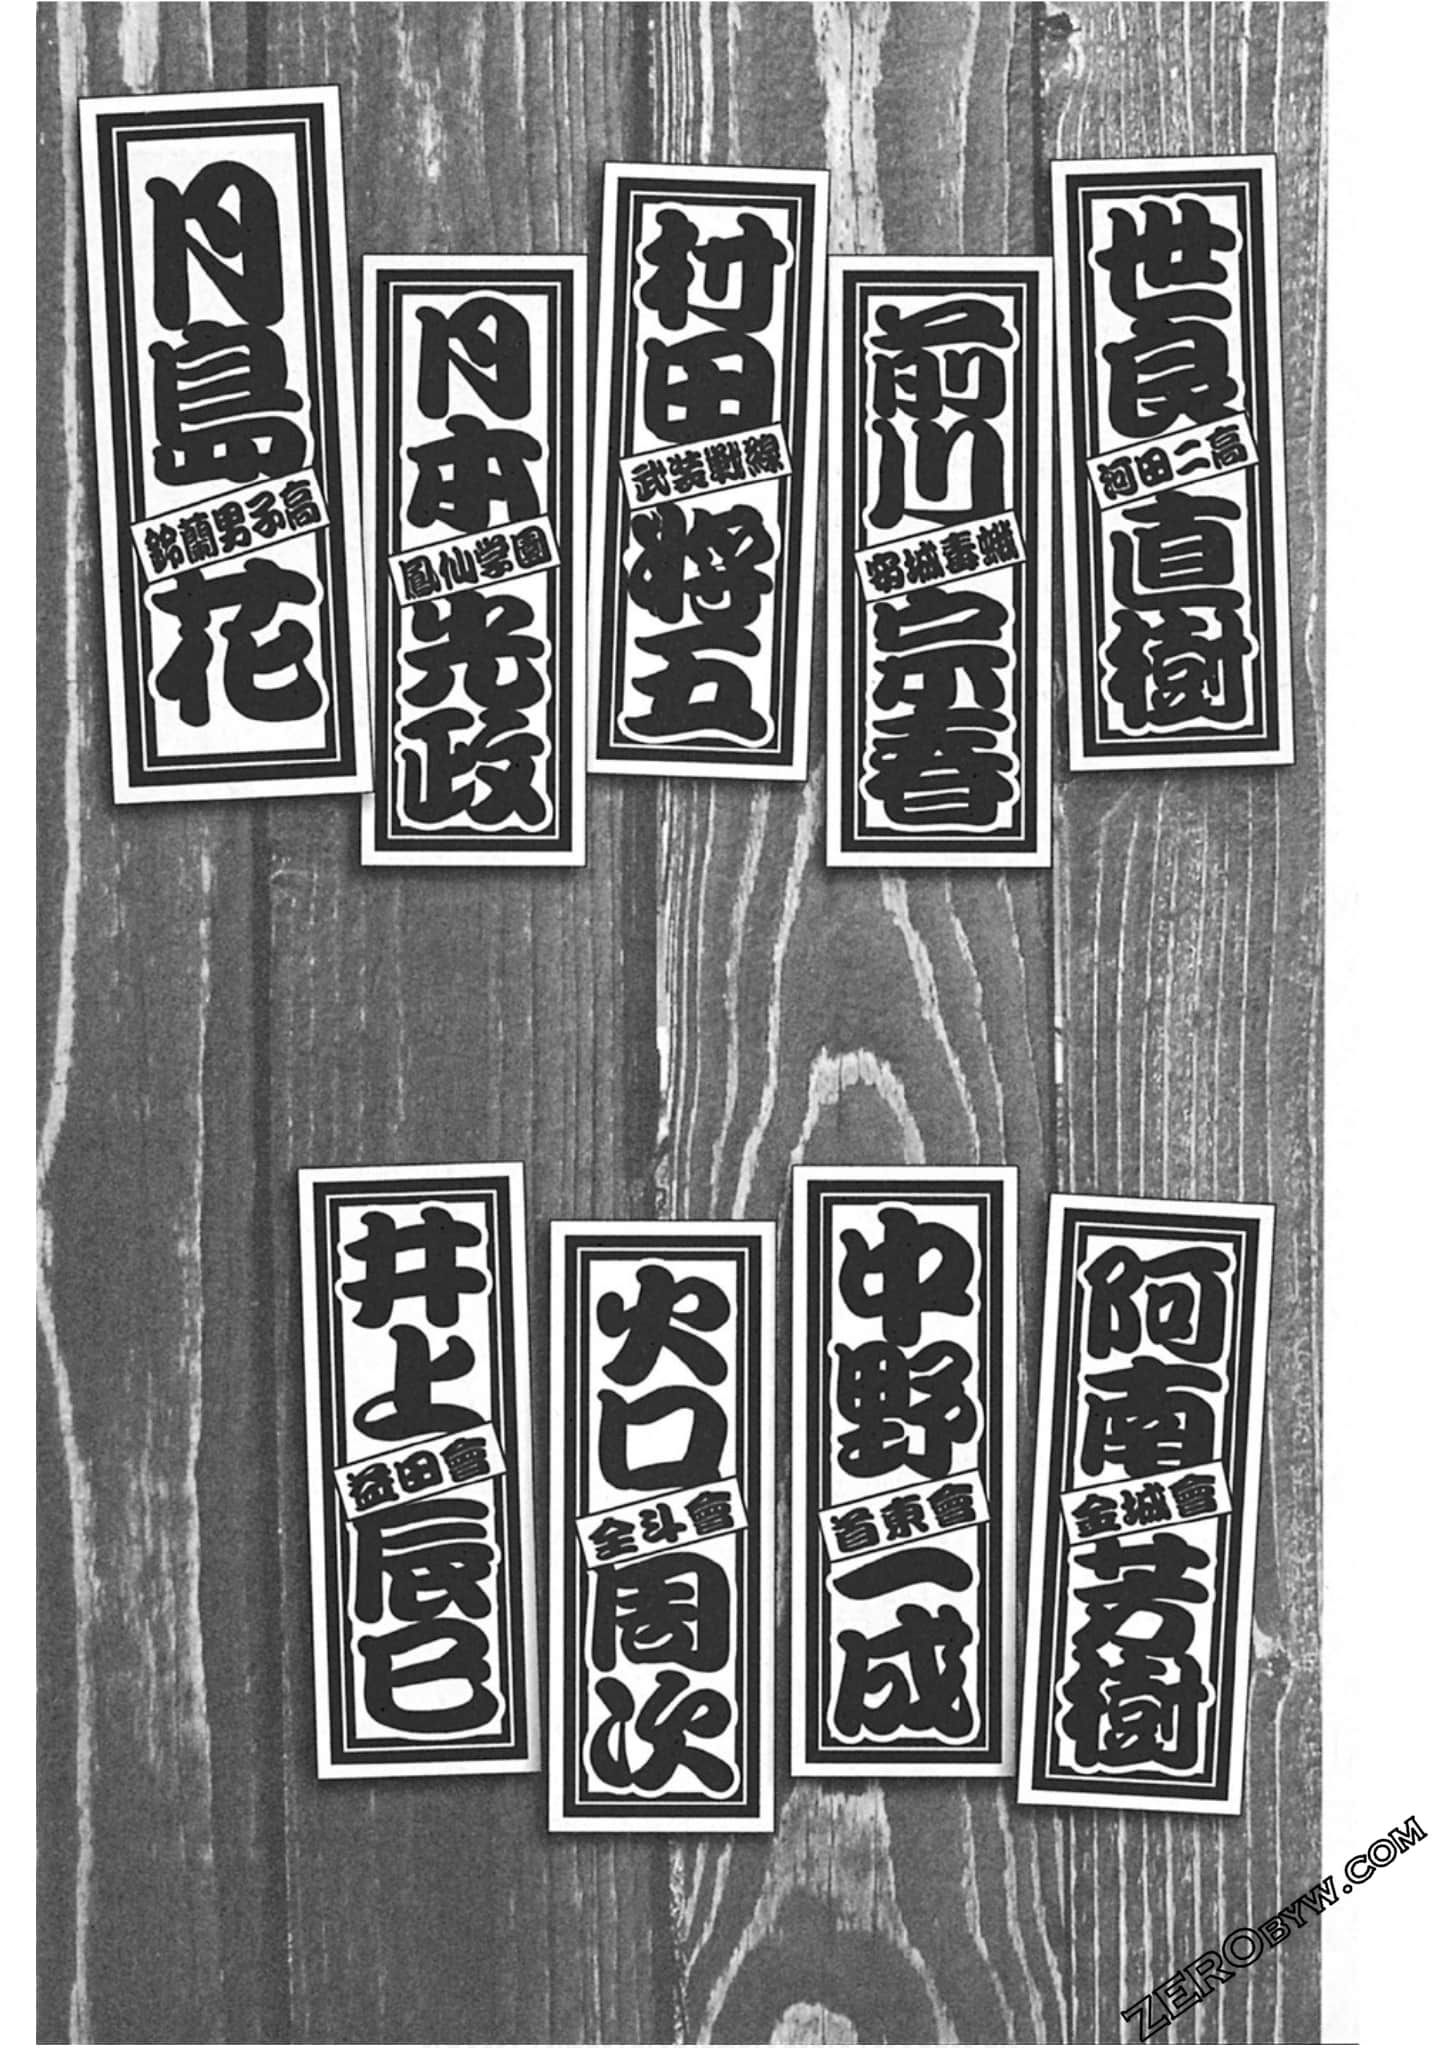 世良直樹
河田二高
前川宗春
安城毒蛾
村田将五
武装戦線
月本光政
鳳仙学園
月島花
鈴蘭男子高
阿南芳樹
金城會
中野一成
首東會
火口周次
全斗會
井上辰巳
益田會
ZEROBYW.COM